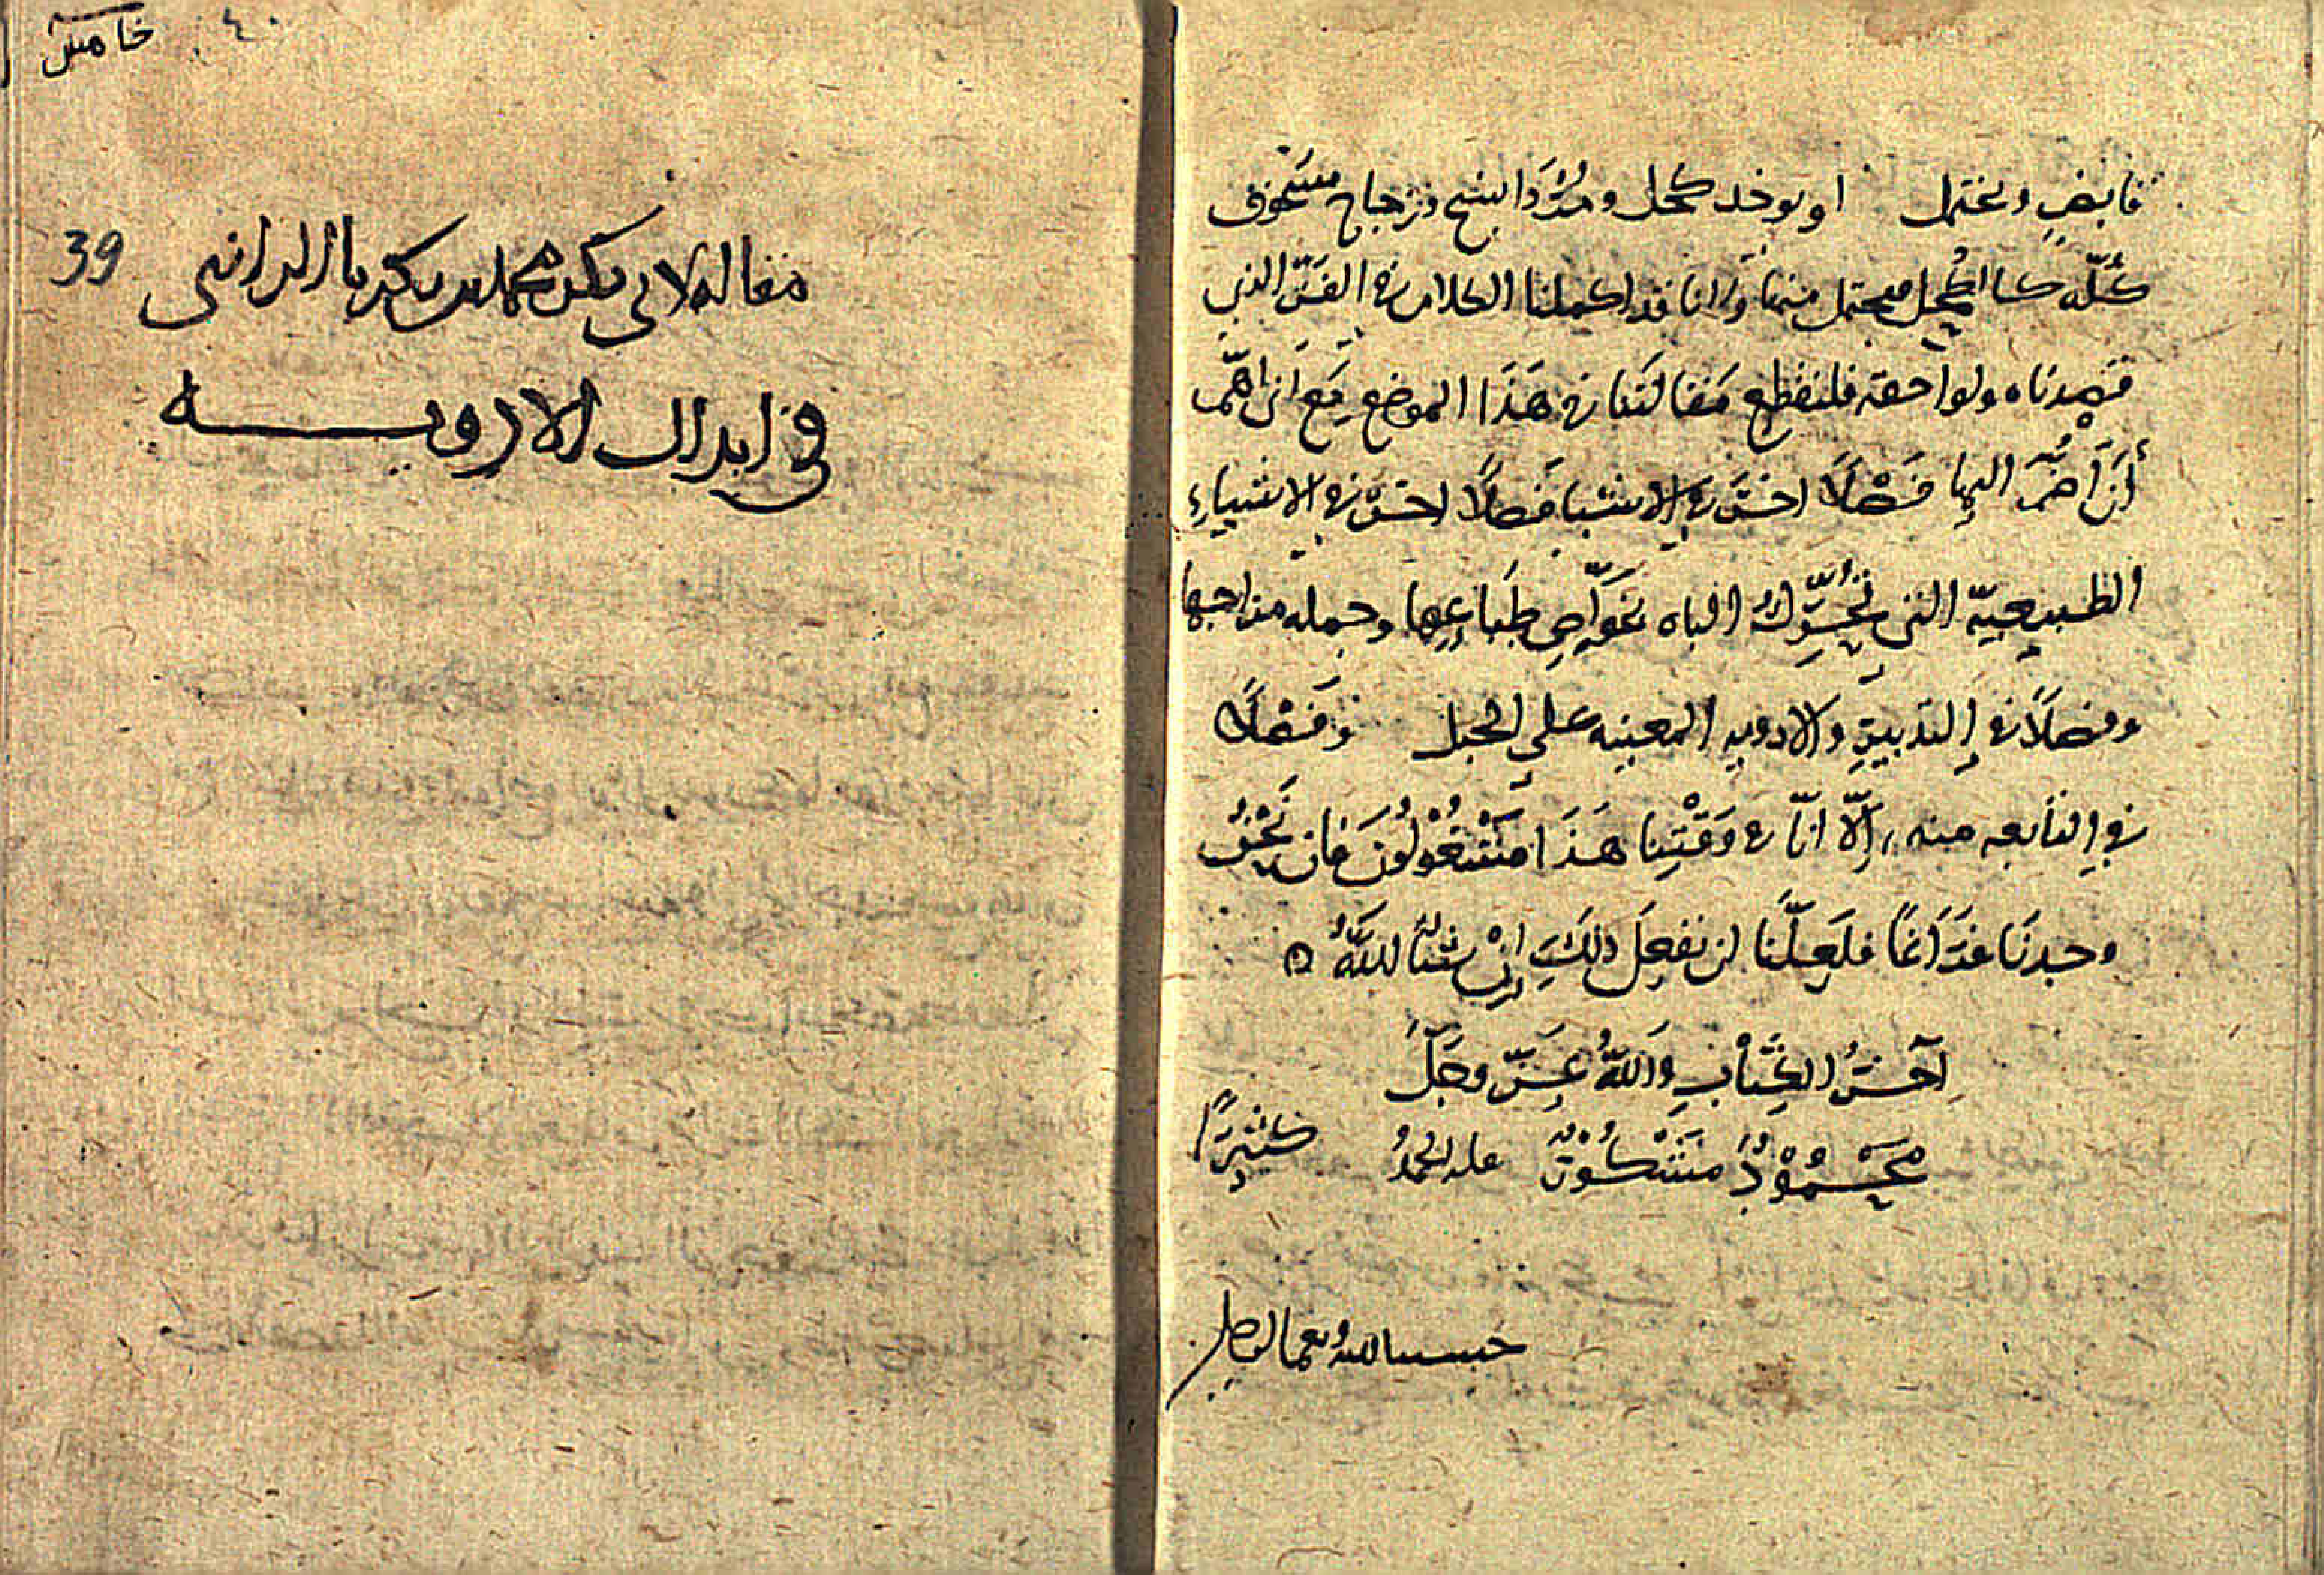 قابض وتحتمل او يوخد كحل ومرداسنج وزجاج مسحوق
كله كالكحل فيحتمل منها واذا قد اكملنا الكلام في الفن الذي
قصدناه ولواحقه فلنقطع مقالتنا في هذا الموضع مع انى اهم
أن أضم اليها فصلا اخر في الاشيا فصلا اخر في الاشياء
الطبيعيّة التى تحرّك الباه بخواص طباعها وجمله مزاجها
وفصلا في التدبير والادويه المعينه على الحبل وفصلا
في المانعه منه إلّا انّا في وقتنا هذا مشغولون فان نحن
وجدنا فراغا فلعلّنا ان نفعل ذلك إن شا الله
آخر الكتاب والله عز وجل
محمود مشكور علي الحمد كثيرا
حسبنا الله ونعم
خامس
٤٠
39
مقاله لابي بكر محمد بن زكريا الرازي
في ابدال الادويه